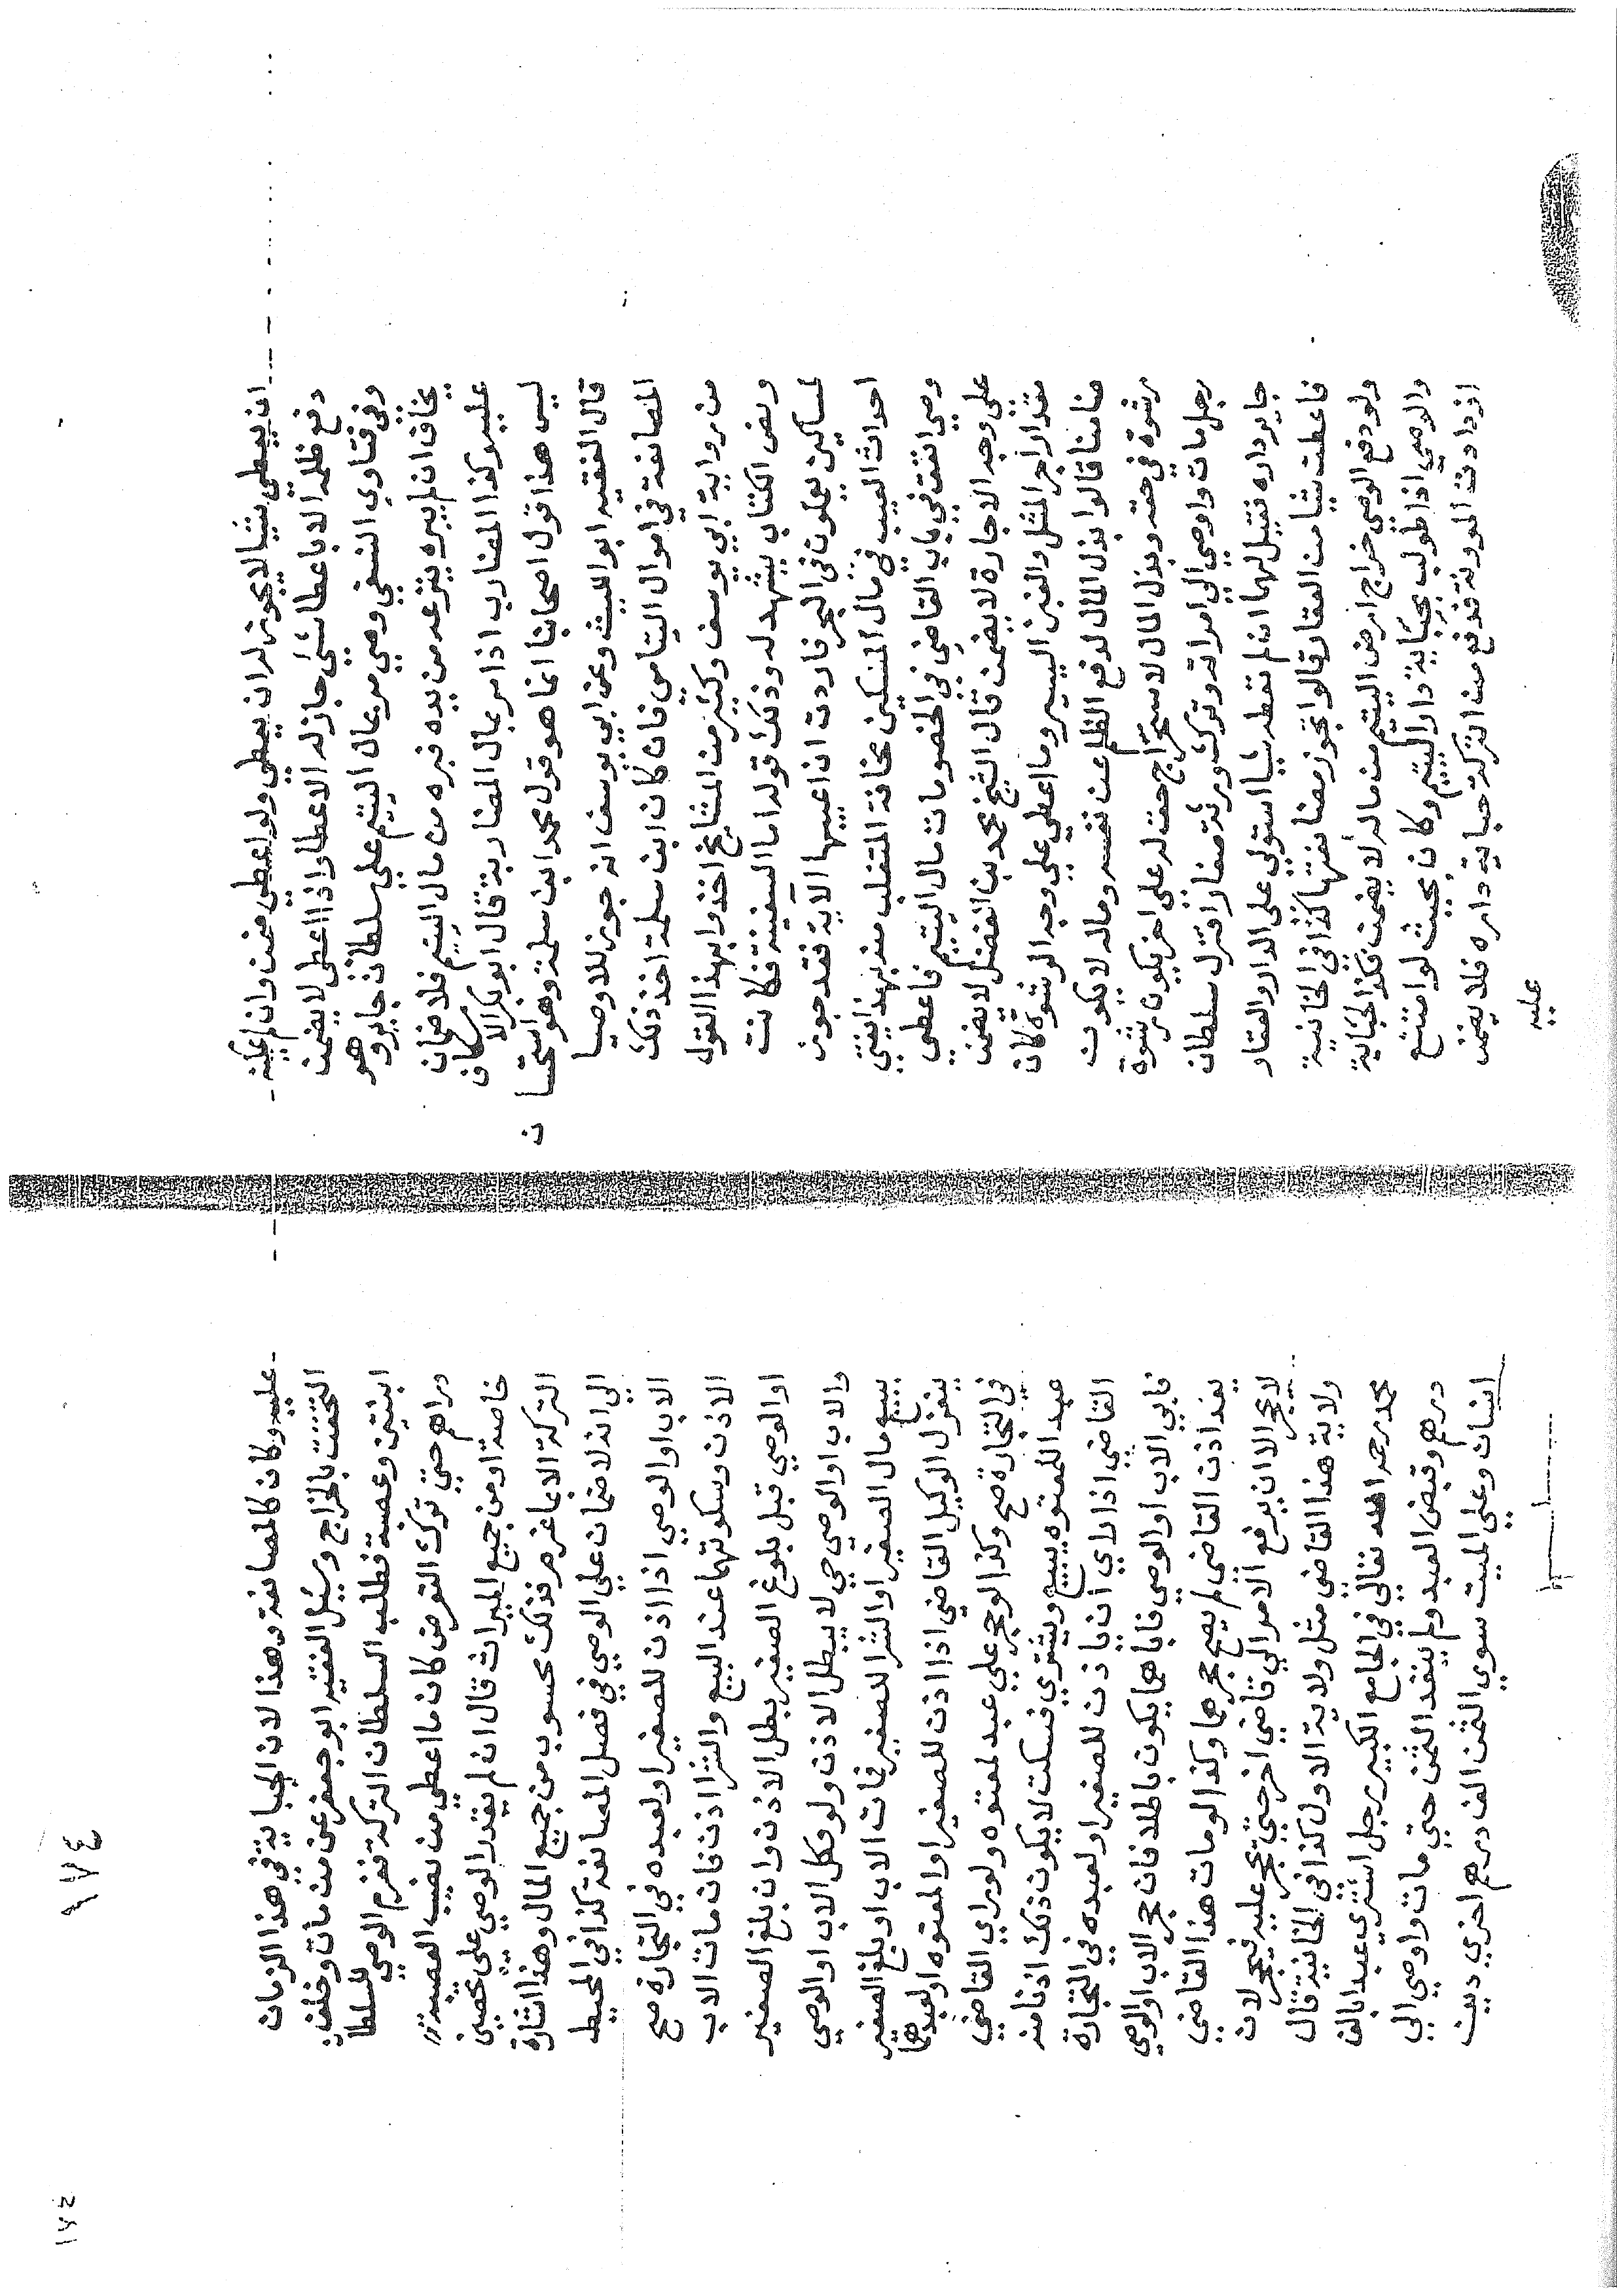 ان يعطي شيئا لا يجوز له ان يعطي ولو اعطي ضمن وان لم يمكنه
دفع ظلمه الا باعطا شئ جاز له الاعطا واذا اعطي لا يضمن
وفي فتاوي النسفي وصي مر بمال اليتيم علي سلطان جاير وهو
يخاف ان لم يبره ينزعه من يده فبره من مال اليتيم فلا ضمان
عليه وكذا المضارب اذا مر بمال المضاربة قال ابو بكر الاسكاف
ليس هذا قول اصحابنا انما هو قول محمد ابن سلمة وهو استحسان
قال الفقيه ابو الليث وعن ابي يوسف انه جوز للاوصيا
المصانعة في اموال اليتامي فان كان ابن سلمة اخذ ذلك
من رواية ابي يوسف وكثير من المشايخ اخذوا بهذا القول
ونص الكتاب يشهد له وذلك قوله اما السفينة فكانت
لمساكين يعملون في البحر فاردت ان اعيبها الآية فقد جوز
احداث العيب في مال المسكين مخافة المتغلب منه بهذا يفتي
وصي انفق في باب القاضي في الخصومات مال اليتيم فاعطي
علي وجه الاجارة لا يضمن قال الشيخ محمد بن الفضل لا يضمن
مقدار اجر المثل والغبن اليسير وما اعطي علي وجه الرشوة كان
ضامنا قالوا بذل المال لدفع الظلم عن نفسه وماله لا يكون
رشوة في حقه وبذل المال لاستخراج حق له علي اخر يكون رشوة
رجل مات واوصي الي امراته وترك ورثة صغارا فنزل سلطان
جاير داره فقيل لها ان لم تعطه شيئا استولي علي الدار والعقار
فاعطت شيا من العقار قالوا تجوز مصانعتها كذا في الخانية
ولو دفع الوصي خراج ارض اليتيم من ماله لا يضمن فكذا الجباية
والوصي اذا طولب بجباية دار اليتيم وكان بحيث لو امتنع
ازدادت المؤونة فدفع من التركة جباية داره فلا يضمن
عليه
عليه وكان كالمصانعة وهذا لان الجباية في هذا الزمان
التحقت بالخراج وسئل الفقيه ابو جعفر عن من مات وخلف
ابنتين وعصبة فطلب السلطان التركة فغرم الوصي للسلطا
دراهم حتي ترك التعرض كان ما اعطي من نصيب العصبة
خاصة او من جميع الميراث قال ان لم يقدر الوصي علي تحصين
التركة الا بما غرم فذلك محسوب من جميع المال وهذا اشارة
الي انه لا ضمان علي الوصي في فصل المصانعة كذا في المحيط
الاب او الوصي اذا اذن للصغير او لعبده في التجارة صح
الاذن وسكوتهما عند البيع والشرا اذن فان مات الاب
او الوصي قبل بلوغ الصغير بطل الاذن وان بلغ الصغير
والاب او الوصي حي لا يبطل الاذن ولو وكل الاب او الوصي
ببيع مال الصغير او الشرا للصغير فمات الاب او بلغ الصغير
ينعزل الوكيل القاضي اذا اذن للصغير او المعتوه او لعبدهما
في التجارة صح وكذا لو حجر علي عبد لمعتوه ولو راي القاضي
عبد اللمعتوه يبيع ويشتري فسكت لا يكون ذلك اذنا منه
القاضي اذا راي ان ياذن للصغير او لعبده في التجارة
فابي الاب او الوصي فاباهما يكون باطلا فان حجر الاب او الوصي
بعد اذن القاضي لم يصح حجرهما وكذا لو مات هذا القاضي
لا يحجر الا ان يرفع الامر الي قاضي اخر حتي تحجر عليه فيحجر لان
ولاية هذا القاضي مثل ولاية الاول كذا في الخانية قال
محمد رحمه الله تعالي في الجامع الكبير رجل اشتري عبدا بالف
درهم وقبض العبد ولم ينقد الثمن حتي مات واوصي الي
انسان وعلي الميت سوي الثمن الف درهم اخري دين
٩٧٤
١٧٤